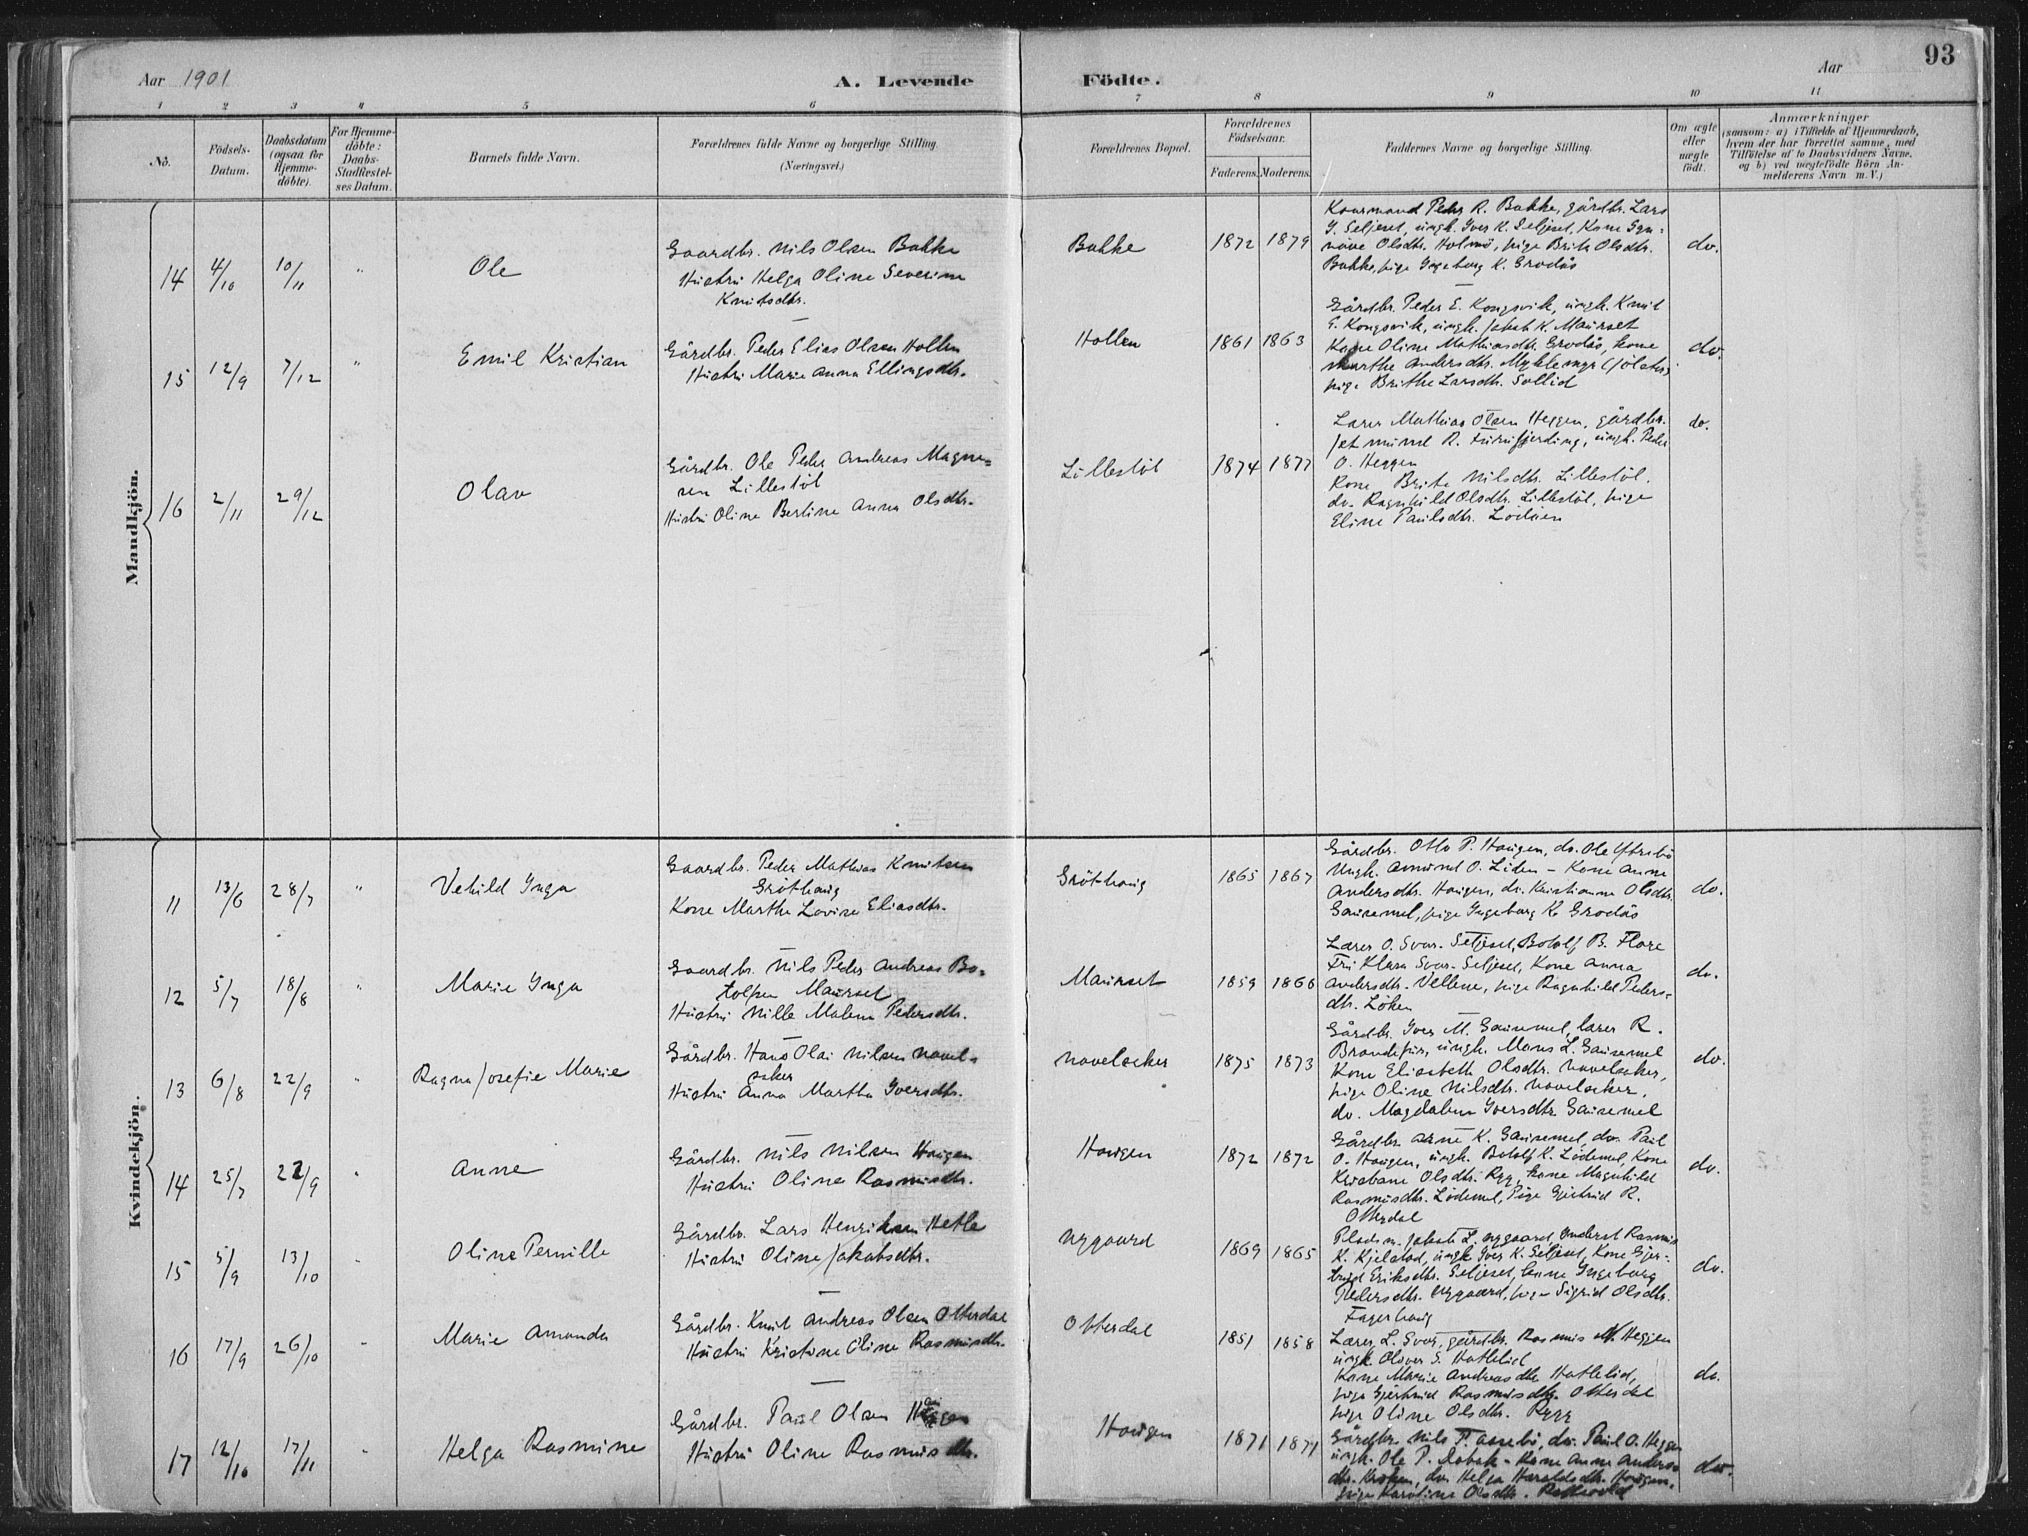 Aar 1901
A. Levende Födte.
Aar
93
1 2 3 4 5 6 7 8 9 10 11
No.
Födsels-Datum.
Daabsdatum (ogsaa for Hjemme-döbte).
For Hjemme-döbte: Daabs-Stadfæstel-ses Datum.
Barnets fulde Navn.
Forældrenes fulde Navne og borgerlige Stilling.
(Næringsvei.)
Forældrenes Bopæl.
Forældrenes Födselsaar.
Faderens. Moderens.
Faddernes Navne og borgerlige Stilling.
Om ægte eller uægte födt.
Anmærkninger
(saasom: a) i Tilfælde af Hjemmedaab,
hvem der har forrettet samme, med
Tilföielse af to Daabsvidners Navne,
og b) ved uægtefödte Börn An-
melderens Navn m. V.)
Mandkjön.
14 4/10 10/11 " Ole
Gaardbr. Nils Olsen Bakke
Hustru Helga Oline Severine
Knutsdtr.
Bakke 1872 1879
Peder R. Bakke, gårdbr. Lars
Y. Seljeset, ungk. Iver K. Seljeset, Kone
Olsdtr. Holmö, pige Brite Olsdtr.
Bakke, pige Ingeborg K. Grodås
do.
15 12/9 7/12 " Emil Kristian
Gårdbr. Peder Elias Olsen Hollen
Hustru Marie Anna Ellingsdtr.
Hollen 1861 1863
Gårdbr. Peder E. Kongsvik, ungk. Knut
E. Kongsvik, ungk. Jakob K. Maurset
Kone Oline Mathiasdtr. Grodås, kone
Marthe Andersdtr. Myklemyr (Jölster)
pige Brithe Larsdtr. Sollid
do.
16 2/11 29/12 Olav
Gårdbr. Ole Peder Andreas Magne-
sen Lillestöl
Hustru Oline Berline Anna Olsdtr.
Lillestöl 1874 1877
Lærer Mathias Olsen Heggen, gårdbr.
R. ungk. Peder
O. Heggen
Kone Brite Nilsdtr. Lillestöl.
do. Ragnhild Olsdtr. Lillestöl, pige
Eline Paulsdtr. Lödöen
do.
Kvindekjön.
11 13/6 28/7 " Vehild Inga
Gaardbr. Peder Mathias Knutsen
Gröthaug
Kone Marthe Lovise Eliasdtr.
Gröthaug 1865 1867
Gårdbr. Otto P. Haugen, do. Ole Ytrebö
Ungk. Amund O. Liden - Kone Anne
Andersdtr. Haugen, do. Kristianne Olsdtr.
Gausemel, pige Ingeborg K. Grodås
do.
12 5/7 18/8 " Marie Inga
Gaardbr. Nils Peder Andreas Bo-
tolfsen Maurset
Hustru Nille Malene Pedersdtr.
Maurset 1859 1866
Lærer O. Svor. Seljeset, Botolf B. Flore
Fru Klara Svor. Seljeset, Kone Anna
Andersdtr. Vellene, pige Ragnhild Peders-
dtr. Löken
do.
13 6/8 22/9 " Ragna Josefie Marie
Gårdbr. Hans Olai Nilsen Navels-
aker
Hustru Anna Martha Iversdtr.
Navelsaker 1875 1873
Gårdbr. Iver M. Gausemel, lærer R.
ungk. Mons L. Gausemel
Kone Elisabeth Olsdtr. Navelsaker,
pige Oline Nilsdtr. Navelsaker,
do. Magdalene Iversdtr. Gausemel
do.
14 25/7 22/9 " Anne
Gårdbr. Nils Nilsen Haugen
Hustru Oline Rasmusdtr.
Haugen 1872 1872
Gårdbr. Arne K. Gausemel, do. Paul
O. Haugen, ungk. Botolf K. Lödemel, Kone
Kristiane Olsdtr. Rygg, kone Magnhild
Rasmusdtr. Lödemel, Pige Gjertrud R.
Otterdal
do.
15 5/9 13/10 " Oline Pernille
Gårdbr. Lars Henriksen Hetle
Hustru Oline Jakobsdtr.
Nygaard 1869 1865
Pladsm. Jakob L. Nygaard, Rasmus
K. Kjelstad, ungk. Iver K. Seljeset, Kone Gjer-
trud Eriksdtr. Seljeset, kone Ingeborg
Pedersdtr. Nygaard, pige Sigrid Olsdtr.
Fagerhaug
do.
16 17/9 26/10 " Marie Amanda
Gårdbr. Knut Andreas Olsen Otterdal
Hustru Kristine Oline Rasmusdtr.
Otterdal 1851 1858
Lærer L. Svor, gårdbr. Rasmus M. Heggen
ungk. Oliver S. Hatlelid
Kone Marie Andreasdtr. Hatlelid,
pige Gjertrud Rasmusdtr. Otterdal
pige Oline Olsdtr. Rygg
do.
17 12/10 17/11 " Helga Rasmine
Gårdbr. Paul Olsen Haugen
Hustru Oline Rasmusdtr.
Haugen 1871 1871
Gårdbr. Nils P. Aasebö, do. Paul O. Heggen
ungk. Ole P. Kone Anne Anders-
dtr. Kroken, do. Helga Haraldsdtr. Haugen,
pige Karoline Olsdtr.
do.